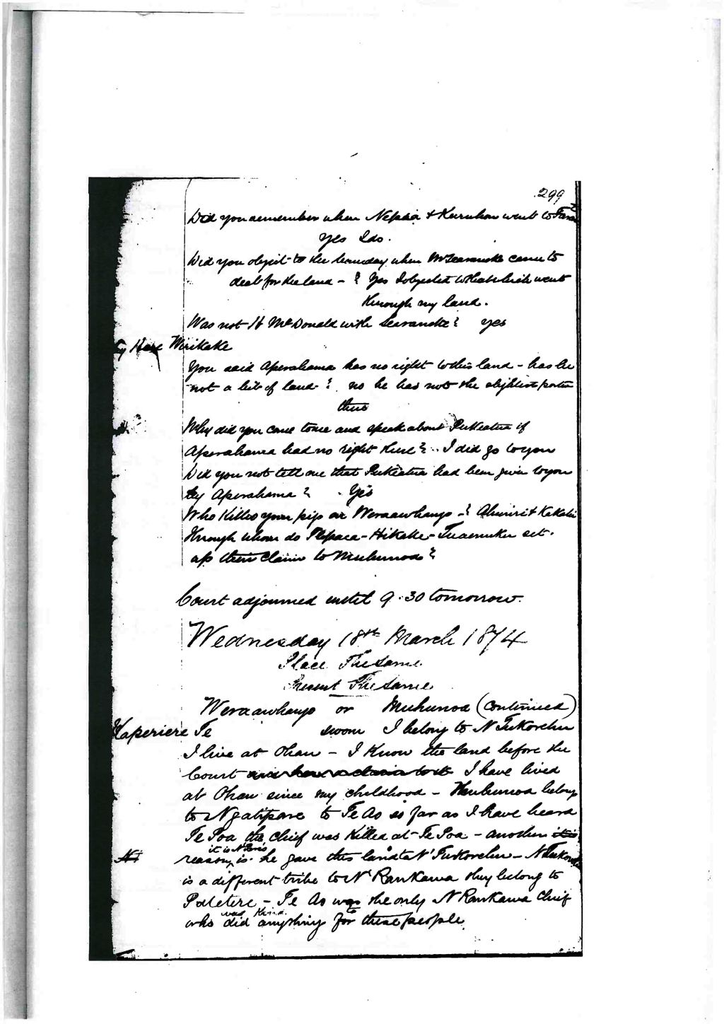 299
Did you remember when Nepaia & Kuruhou went to
Yes I do.
Did you object to the boundary when Mr Searancke came to
deal for the land - ? Yes I objected to that which went
through my land.
Was not H McDonald with Searancke? yes
By Hare Wirikake
You said Aperahama has no right to this land - has he
not a bit of land? no he has not the slightest portion
there
Why did you come to me and speak about Pukeatua if
Aperahama had no right there? I did go to you
Did you not tell me that Pukeatua had been given to you
by Aperahama? Yes
Who killed your pigs on Weraawhango -?
Through whom do - Hikake - Tuainuku set
up their claim to Muhunoa?
Court adjourned until 9.30 tomorrow.
Wednesday 18th March 1874
Place The same
Present The same
Weraawhango or Muhunoa (Continued)
Kaperiere Te sworn I belong to N Tukorehu
I live at Ohau - I know the land before the
Court and have a claim to it I have lived
at Ohau since my childhood - Muhunoa belong
to Ngatipare to Te Ao so far as I have heard
Te Poa the chief was killed at Te Poa - another
reason is he gave this land to N' Tukorehu - N Tukorehu
is a different tribe to N Raukawa they belong to
Patetere - Te Ao was the only N Raukawa Chief
who did anything for these people
was kind to